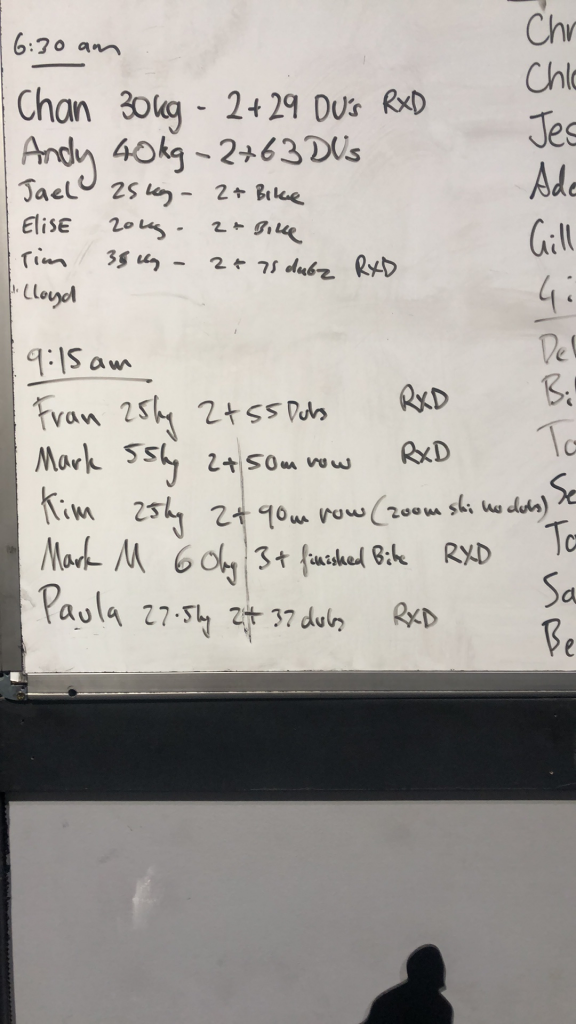 6:30 am
Chan 30kg - 2+29 DU's RXD
Andy 40kg - 2+63 DUs
Jael 25kg - 2+ Bike
Elise 20kg - 2+ Bike
Tim 35kg - 2+ 75 dubz RXD
Lloyd
9:15 am
Fran 25kg 2+55 Dubs RXD
Mark 55kg 2+50m row RXD
Kim 25kg 2+90m row (200m ski no dubs)
Mark M 60kg 3+ finished Bike RXD
Paula 27.5kg 2+ 37 dubs RXD
Chr
Chlo
Jes
Ade
Gill
4:
Del
Bi
To
Se
To
Sa
Be